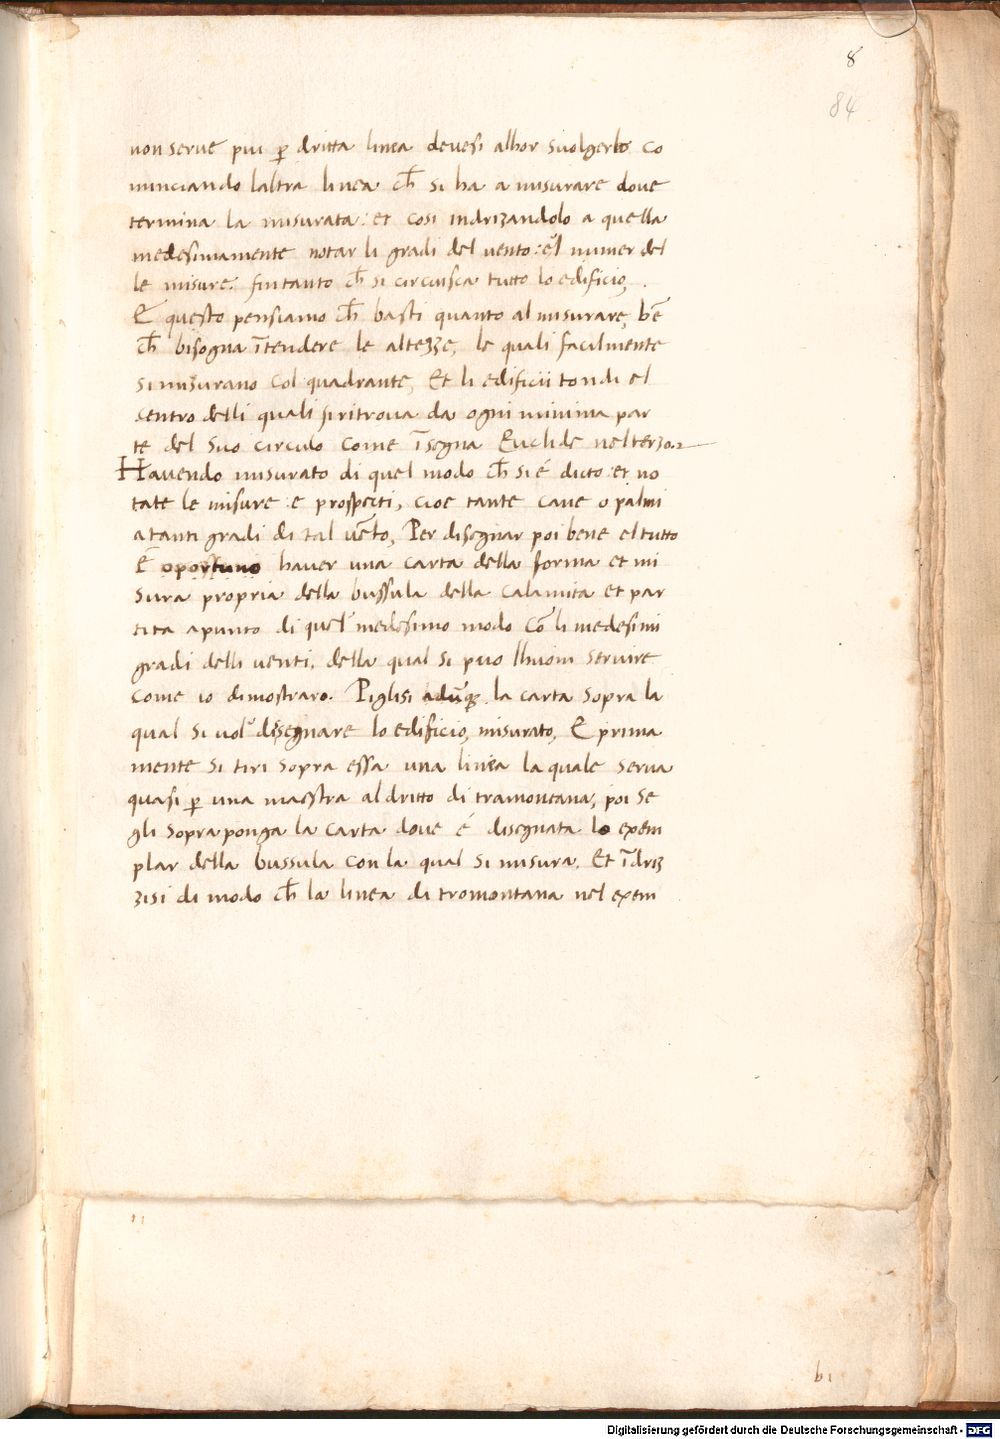 8
84
non serve piu p̱ dritta linea devesi alhor svolgerlo co
minciando laltra linea ch̄ si ha a misurare dove
termina la misurata: et cosi indrizandolo a quella
medesimamente notar li gradi del vento: el numer del
le misure. fin tanto ch̄ si circuisca tutto lo edificio,
E questo pensiamo ch̄ basti quanto al misurare, bē
ch̄ bisogna ītendere le altezze, le quali facilmente
si misurano col quadrante, Et li edificii tondi el
centro delli quali si ritrova da ogni minima par
te del suo circulo come īsegna Euclide nel terzo.
Havendo misurato di quel modo ch̄ si é dicto: et no
tate le misure e prospecti, cioe tante cane o palmi
a tanti gradi di tal vēto, Per disegnar poi bene el tutto
É oportuno haver una carta della forma et mi
sura propria della bussula della calamita et par
tita apunto di quel medesimo modo cō li medesimi
gradi delli venti, della qual si puo lhuom servire
come io dimostraro. Piglisi adūq la carta sopra la
qual si vol disegnare lo edificio, misurato, E prima
mente si tiri sopra essa una linea la quale serva
quasi p̱ una maestra al dritto di tramontana, poi se
gli sopra ponga la carta dove é disegnata lo exem
plar della bussula con la qual si misura, Et īdriz
zisi di modo ch̄ la linea di tromontana nel exem
b1
Digitalisierung gefördert durch die Deutsche Forschungsgemeinschaft - DFG